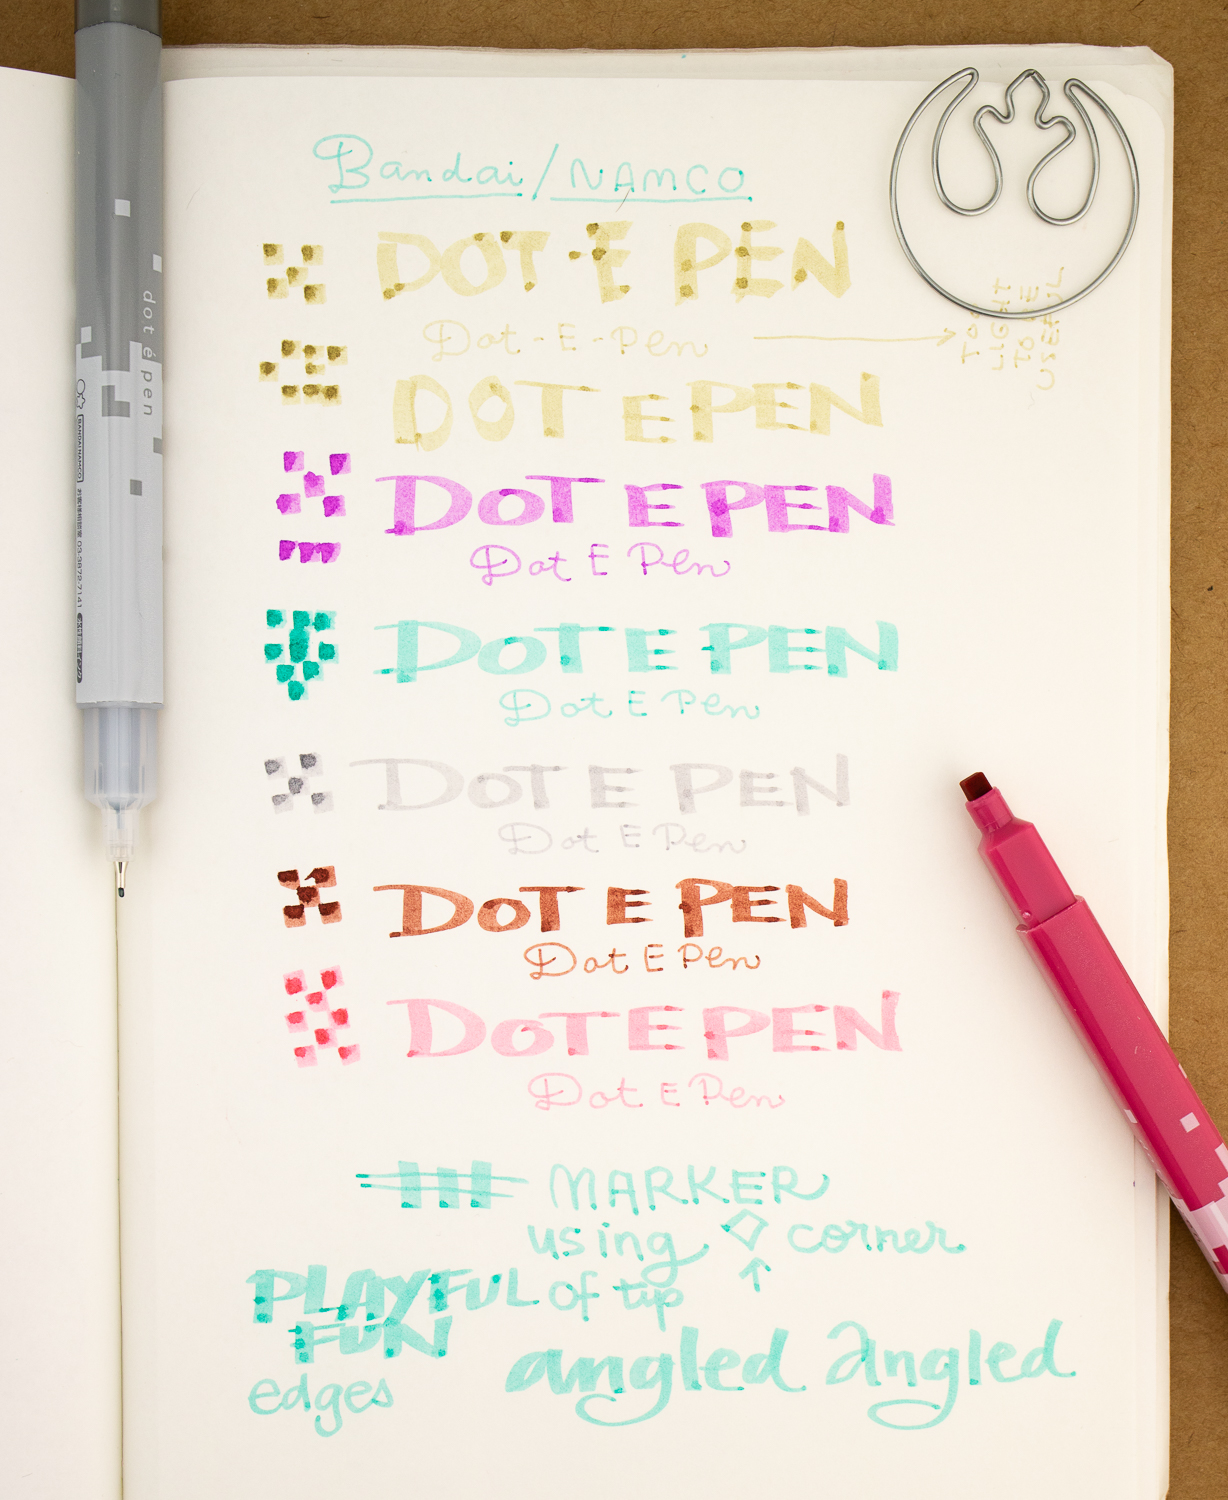 Bandai/NAMCO
DOT-E PEN
Dot-E-Pen
TOO
LIGHT
TO BE
USEFUL
DOT E PEN
DOT E PEN
Dot E Pen
DOT E PEN
Dot E Pen
DOT E PEN
Dot E Pen
DOT E PEN
Dot E Pen
DOT E PEN
Dot E Pen
MARKER
using corner
of tip
PLAYFUL
FUN
edges
angled angled
dot é pen
BANDAI NAMCO